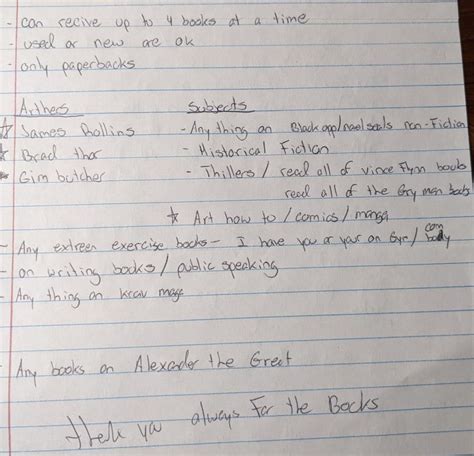 - can recive up to 4 books at a time
- used or new are ok
- only paperbacks
Arthers Subjects
☆ James Rollins - Any thing on Black opp/navel seals non-Fiction
☆ Brad thor - Historical Fiction
☆ Gim butcher - Thillers / read all of vince Flynn books
read all of the Grey man books
☆ Art how to / comics / manga
- Any extreen exercise books - I have you or your on Gym/
- on writing books / public speaking
- Any thing on krav mage
- Any books on Alexader the Great
thenk you always For the Books